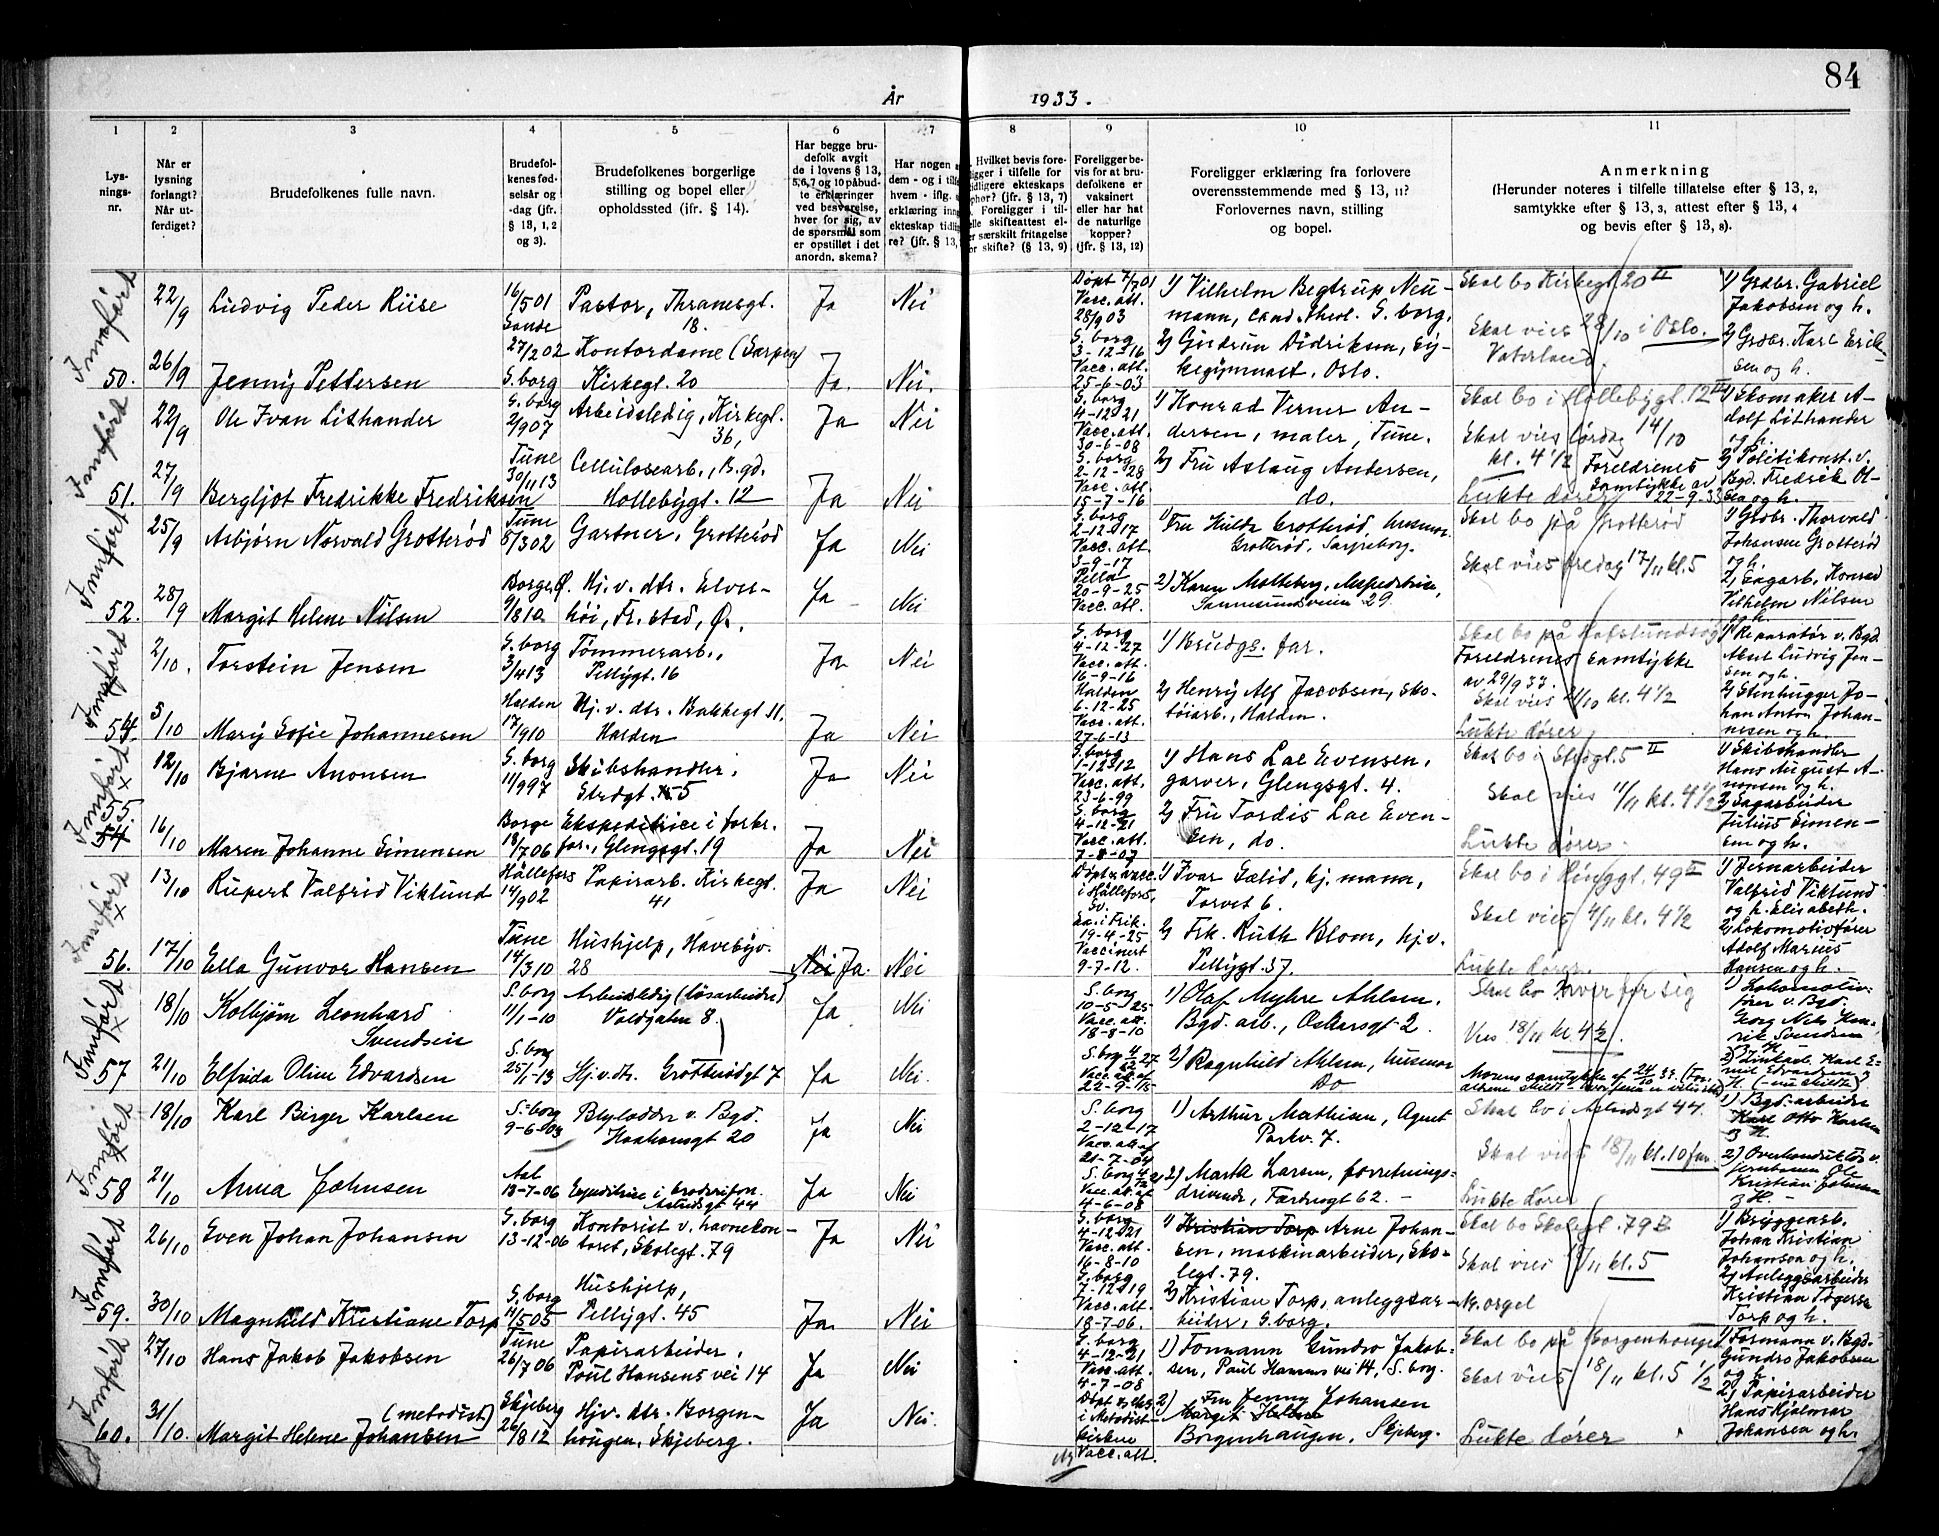 84
År 1933.
1 2 3 4 5 6 7 8 9 10 11
Lys-
nings-
nr.
Når er
lysning
forlangt?
Når ut-
ferdiget?
Brudefolkenes fulle navn.
Brudefol-
kenes fød-
selsår og
-dag (jfr.
§ 13, 1, 2
og 3).
Brudefolkenes borgerlige
stilling og bopel eller
opholdssted (jfr. § 14).
Har begge bru-
defolk avgit
de i lovens § 13,
5, 6, 7 og 10 påbud-
te erklæringer
ved besvarelse,
hver for sig, av
de spørsmål som
er opstillet i det
anordn. skema?
Har nogen a
dem - og i tilfe
hvem - iflg. s
erklæring inng
ekteskap tidlig
re? (jfr. § 13,
Hvilket bevis fore-
ligger i tilfelle for
tidligere ekteskaps
ophør? (jfr. § 13, 7)
Foreligger i til-
felle skifteattest el-
er særskilt fritagelse
for skifte? (§ 13, 9)
Foreligger be-
vis for at bru-
defolkene er
vaksinert
eller har hat
de naturlige
kopper?
(jfr. § 13, 12)
Foreligger erklæring fra forlovere
overensstemmende med § 13, 11?
Forlovernes navn, stilling
og bopel.
Anmerkning
(Herunder noteres i tilfelle tillatelse efter § 13, 2,
samtykke efter § 13, 3, attest efter § 13, 4
og bevis efter § 13, 8).
Innført
50.
22/9
Ludvig Peder Riise
16/5 01
Sande
Pastor, Thranesgt.
18.
Ja
Nei
Døpt 7/7 01
Vacc. att.
28/9 03
1) Vilhelm Begtrup Neu-
mann, cand. theol. S.borg.
Skal bo Kirkegt. 20 II
Skal vies 28/10 i Oslo.
Vaterland
1) Grdbr. Gabriel
Jakobsen og h.
26/9
Jenny Pettersen
27/2 02
S.borg
Kontordame (Sarpen)
Kirkegt. 20
Ja.
Nei.
S.borg
3-12-16
Vacc. att.
25-6-03
2) Gudrun Didriksen, Sy-
kegymnast, Oslo.
2) Grdbr. Karl Erik-
sen og h.
Innført
51.
22/9
Ole Ivan Lithander
S.borg
2/9 07
Arbeidsledig, Kirkegt.
36,
Ja
Nei
S.borg
4-12-21
Vacc. att.
30-6-08
1) Konrad Verner An-
dersen, maler, Tune.
Skal bo i Hollebygt. 12 III
Skal vies lørdag 14/10
kl. 4 1/2
1) Skomaker A-
dolf Lithander
og h.
27/9
Bergljot Fredrikke Fredriksen
Tune
30/11 13
Cellulosearb., B.gd.
Hollebygt. 12
Ja
Nei
S.borg
2-12-28
Vacc. att.
15-7-16
2) Fru Aslaug Andersen,
do.
Foreldrenes
samtykke av
22-9-33
Lukte dører
2) Politikonst. v.
Bgd. Fredrik Ol-
sen og h.
Innført
52.
25/9
Asbjørn Norvald Grotterød
Tune
8/3 02
Gartner, Grotterød
Ja
Nei
S.borg
2-12-17
Vacc. att.
5-9-17
1) Fru Hulda Grotterød, husmor
Grotterød, Sarpsborg.
Skal bo på Grotterød
Skal vies fredag 17/11 kl. 5
1) Grdbr. Thorvald
Johansen Grotterød
og h.
28/9
Margit Helene Nilsen
Borge, Ø.
Hj. v. dtr. Elves-
høi, Fr.stad, Ø.
Ja
Nei
20-9-25
Vacc. att.
2) Karen Molteberg, Ekspeditrise,
Sannesundsveien 29.
2) Sagarb. Konrad
Vilhelm Nilsen
og h.
Innført
54.
2/10.
Torstein Jensen
S.borg
3/4 13
Tømmerarb.,
Pellygt. 16
Ja
Nei
S.borg
4-12-27
Vacc. att.
16-9-16
1) Brudgs. far.
Skal bo på Hafslundsøy
Foreldrenes samtykke
av 29/9 33.
Skal vies 21/10 kl. 4 1/2
1) Reparatør v. Bgd.
Aksel Ludvig Jen-
sen og h.
5/10
Mary Sofie Johannesen
Halden
17/9 10
Hj. v. dtr. Bakkegt. 11,
Halden
Ja
Nei
Halden
6-12-25
Vacc. att.
27-6-13
2) Henry Alf Jacobsen, Sko-
tøiarb., Halden.
Lukte dører
2) Stenhugger Jo-
han Anton Johan-
nesen og h.
Innført
55.
12/10
Bjarne Anonsen
S.borg
11/9 97
Skibshandler,
Strdgt. 5
Ja
Nei
S.borg
1-12-12
Vacc. att.
23-6-99
1) Hans Lae Evensen,
garver, Glengsgt. 4.
Skal bo i Strdgt. 5 II
Skal vies 11/11 kl. 4 1/2
1) Skibshandler
Hans August A-
nonsen og h.
16/10
Maren Johanne Simensen
Borge
18/7 06
Ekspeditrice i forbr.
for., Glengsgt. 19
Ja
Nei
S.borg
4-12-21
Vacc. att.
7-8-07
2) Fru Tordis Lae Even-
sen, do.
Lukte dører
2) Sagarbeider
Julius Simen-
sen og h.
Innført
56.
13/10
Rupert Valfrid Viklund
Hällefors
14/9 02
Papirarb. Kirkegt.
41
Ja
Nei
Døpt & vacc.
i Hällefors,
Sv.
1) Ivar Sælid, hj. mann,
Torvet 6.
Skal bo i Ringgt. 49 II
Skal vies 4/11 kl. 4 1/2
1) Jernarbeider
Valfrid Viklund
og h. Elisabeth.
17/10
Ella Gunvor Hansen
Tune
14/3 10
Hushjelp, Havebyv.
28
Nei Ja.
Nei
19-4-25
Vaccinert
9-7-12.
2) Frk. Ruth Blom, hj. v.
Pellygt. 37.
Lukte dører
2) Lokomotivfører
Adolf Marius
Hansen og h.
Innført
57
18/10
Kolbjørn Leonhard
Svendsen
S.borg
11/1-10
Arbeidsledig (løsarbeider)
Voldgaten 8.
Ja
Nei
S.borg
10-5-25
Vacc. att.
18-8-10
1) Olaf Myhre Ahlsen,
Bgd. arb., Oskarsgt 2.
Skal bo hver for sig
Vies 18/11 kl 4 1/2.
1) Lokomotiv-
fører v. Bgd.
Georg Nils Hen-
rik Svendsen
21/10
Elfrida Oline Edvardsen
S.borg
25/1-13
Hj. v. dtr. Grotterødgt 7
Ja
Nei.
2) Ragnhild Ahlsen, husmor
Do
Innført
58
18/10
Karl Birger Karlsen
S.borg
9-6-03
Blylodder v. Bgd.
Haakonsgt 20
Ja
Nei
S.borg
2-12-17
Vacc. att. af
21-7-04
1) Arthur Mathisen, Agent
Parkv. 7.
Skal bo i Astridsgt 44.
Skal vies 18/11 kl. 10 fm.
1) Bgd. arbeider
Karl Otto Karlsen
& H.
21/10
Anna Johnsen
18-7-06
Expeditrice i broderiforr.
Astridsgt 44
Ja
Nei
4-6-08
2) Marth Larsen, forretnings-
drivende, Færdersgt 62.
Lukte dører
2) Overkonduktør v.
Jernbanen Ole
Kristian Johnsen
& H.
Innført
59.
26/10
Sven Johan Johansen
S.borg
13-12-06
Kontorist v. havnekon-
toret, Skolegt. 79
Ja
Nei
S.borg
4-12-21
Vacc. att.
16-8-10
1) Kristian Torp Arne Johan-
sen, maskinarbeider, Sko-
legt. 79.
Skal bo Skolegt. 79
Skal vies kl. 5
1) Bryggearb.
Johan Kristian
Johansen og h.
30/10
Magnhild Kristiane Torp
S.borg
11/5 05
Hushjelp,
Pellygt. 45
Ja.
Nei
S.borg
7-12-19
Vacc. att.
18-7-06.
2) Kristian Torp, anleggsar-
beider, S.borg.
M. orgel
2) Anleggsarbeider
Kristian Togersen
Torp og h.
Innført
60.
27/10
Hans Jakob Jakobsen
Tune
26/7 06
Papirarbeider,
Poul Hansens vei 14
Ja
Nei
S.borg
4-12-21
Vacc. att.
4-7-08
1) Formann Gundro Jakob-
sen, Paul Hansens vei 14, S.borg.
Skal bo på Borgenhauget
Skal vies 18/11 kl. 5 1/2
1) Formann v. Bgd.
Gundro Jakobsen
og h.
31/10.
(metodist)
Margit Helene Johansen
Skjeberg
26/8 12
Hjv. dtr. Borgen-
haugen, Skjeberg.
Ja
Nei.
i Metodist-
kirken
Vacc. att.
2) Fru Jenny Johansen
Margit Helene
Borgenhaugen, Skjeberg.
Lukte dører
2) Papirarbeider
Hans Hjalmar
Johansen og h.